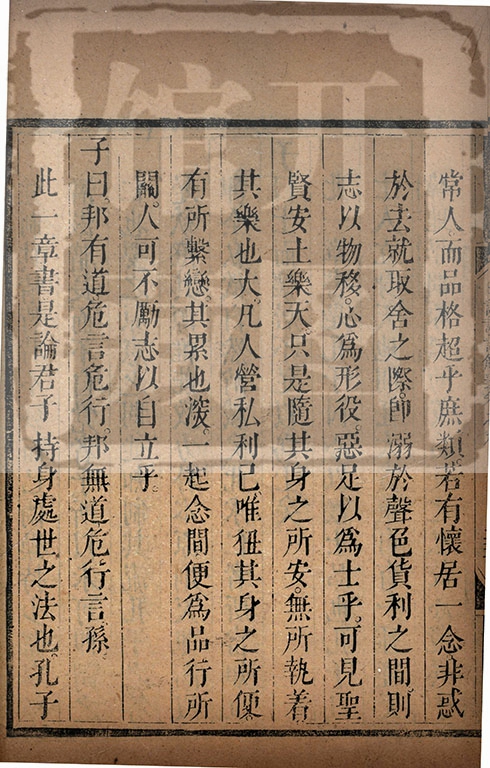 常人而品格超乎庶類若有懷居一念非惑
於去就取舍之際即溺於聲色貨利之間則
志以物移心為形役惡足以為士乎可見聖
賢安土樂天只是隨其身之所安無所執着
其樂也大凡人營私利己唯狃其身之所便
有所繫戀其累也深一起念間便為品行所
關人可不勵志以自立乎
子曰邦有道危言危行邦無道危行言孫
此一章書是論君子持身處世之法也孔子